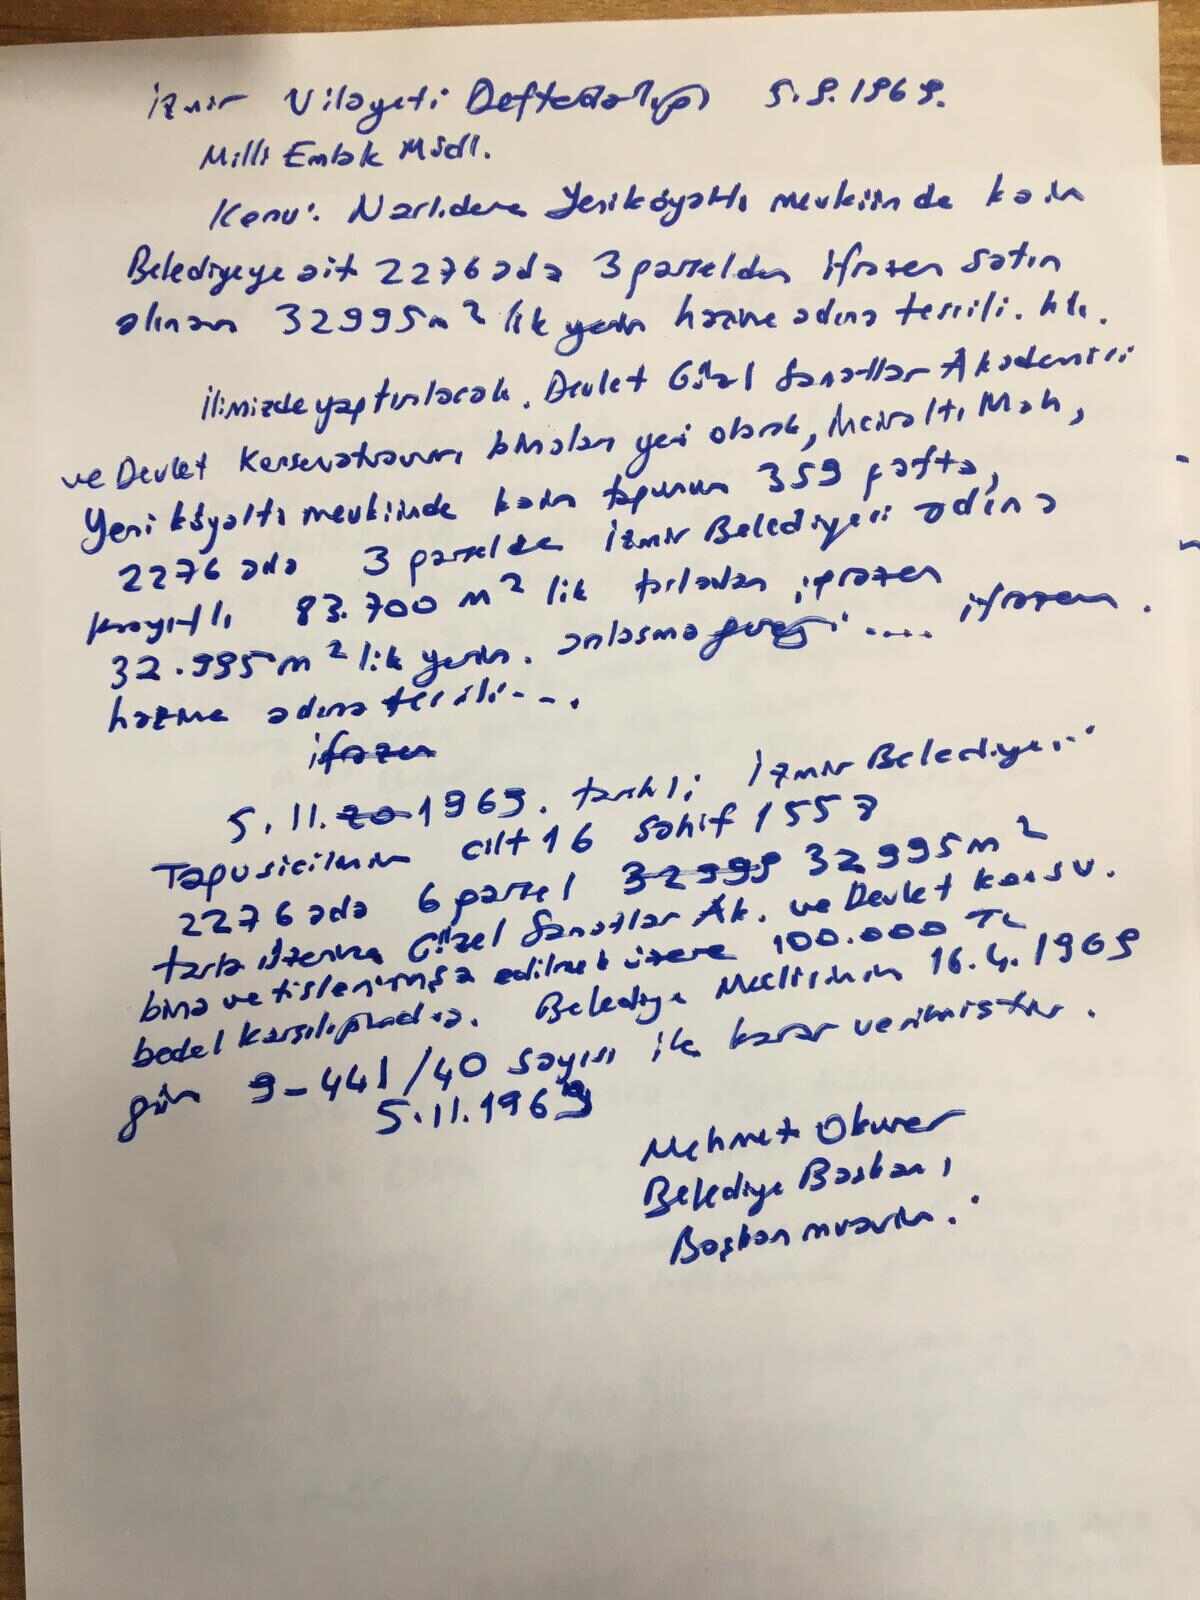 İzmir Vilayeti Defterdarlığı 5.9.1969.
Milli Emlak Müdl.
Konu: Narlıdere Yeniköyaltı mevkiinde kain
Belediyeye ait 2276 ada 3 parselden ifrazen satın
alınan 32995m² lik yerin hazine adına tescili. hk.
İlimizde yaptırılacak. Devlet Güzel Sanatlar Akademisi
ve Devlet Konservatuvarı binaları yeri olarak, İnciraltı Mah,
Yeniköyaltı mevkiinde kain tapunun 359 pafta,
2276 ada 3 parselde İzmir Belediyesi adına
kayıtlı 83.700 m² lik tarladan ifrazen
32.995m² lik yerin. anlaşma gereği .... ifrazen.
hazine adına tescili---.
ifrazen
5.11. 1969. tarihli İzmir Belediyesi
Tapusicilinin cilt 16 sahif 1557
2276 ada 6 parsel 32995 32995m²
tarla üzerine Güzel Sanatlar Ak. ve Devlet konsv.
bina ve tislerinşa edilmek üzere 100.000 TL
bedel karşılığında. Belediye Meclisinin 16.4.1969
gün 9-441/40 sayısı ile karar verilmiştir.
5.11.1969
Mehmet Okurer
Belediye Başkanı
Başkan muavin.